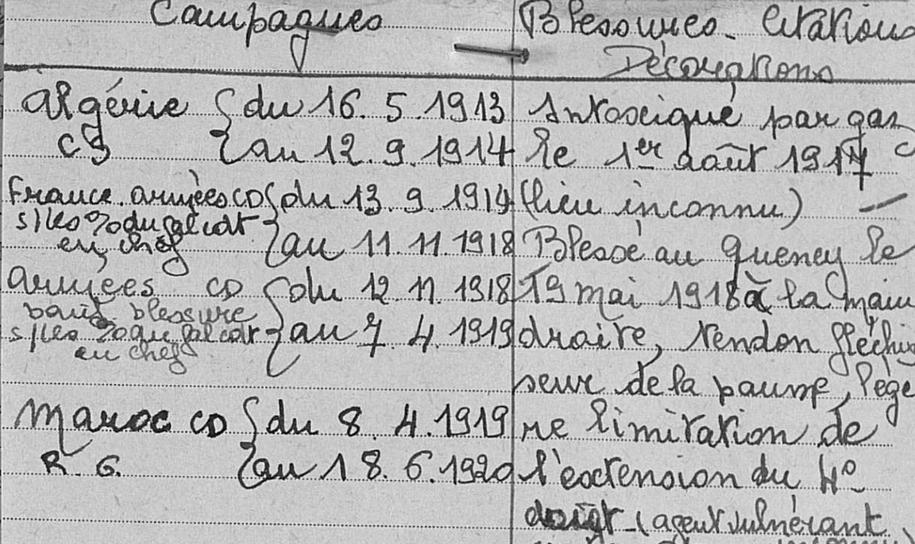 Campagnes
Algérie { du 16. 5. 1913
CS { au 12. 9. 1914
France armées CD { du 13. 9. 1914
s/les % du gal cdt
en chef } au 11. 11. 1918
armées CD { du 12. 11. 1918
blessure
s/les % du gal cdt } au 7 4. 1919
en chef
Maroc CD { du 8. 4. 1919
R. G. { au 18. 6. 1920
Blessures - Citations
Décorations
Intoxiqué par gaz
le 1er août 1917
(lieu inconnu) —
Blessé au Queney le
19 mai 1918 à la main
droite, tendon fléchis
seur de la paume, lége
re limitation de
l'extension du 4°
doigt - (agent vulnérant